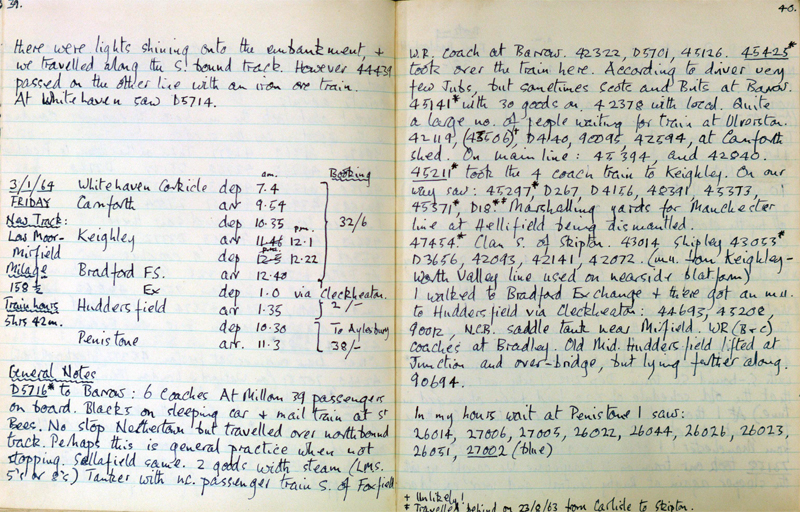 39.
there were lights shining onto the embankment, +
we travelled along the S. bound track. However 44439
passed on the other line with an iron ore train.
At Whitehaven saw D5714.
am. Booking
3/1/64 Whitehaven Corkicle dep 7.4
FRIDAY Carnforth arr 9.54
New Track: dep 10.35 p.m. 32/6
Low Moor- Keighley arr 11.46 12.1
Mirfield dep 12.5 12.22
Milage Bradford F.S. arr 12.40
158½ Ex dep 1.0 via Cleckheaton.
Train hours Huddersfield arr 1.35 2/-
5hrs 42m. dep 10.30 To Aylesbury
Penistone arr. 11.3 38/-
General Notes
D5716* to Barrow: 6 coaches At Millom 39 passengers
on board. Blacks on sleeping car + mail train at St
Bees. No stop Nethertown but travelled over northbound
track. Perhaps this is general practice when not
stopping. Sellafield same. 2 goods with steam (LMS.
5's or 8's) Tanker with nc. passenger train S. of Foxfield
40.
W.R. Coach at Barrow. 42322, D5701, 45126. 45425*
took over the train here. According to driver very
few Jubs, but sometimes Scots and Brits at Barrow.
45141* with 30 goods on. 42378 with local. Quite
a large no. of people waiting for train at Ulverston.
42119, (43506)+, D4140, 90095, 42594, at Carnforth
shed. On main line: 45394, and 42840.
45211* took the 4 coach train to Keighley. On our
way saw: 45297* D267, D4156, 48391, 45373,
45371* D18.* Marshalling yards for Manchester
line at Hellifield being dismantled.
47454.* Clan S. of Skipton. 43014 Shipley 43053*
D3656, 42093, 42141, 42072. (m.u. from Keighley-
Worth Valley line used on nearside platform)
I walked to Bradford Exchange + there got an m.u.
to Huddersfield via Cleckheaton: 44693, 43208,
90012, N.C.B. saddle tank near Mirfield. WR (B+C)
coaches at Bradley. Old Mid. Huddersfield lifted at
Junction and over-bridge, but lying further along.
90694.
In my hours wait at Penistone I saw:
26014, 27006, 27005, 26022, 26044, 26026, 26023,
26051, 27002 (blue)
+ Unlikely!
* Travelled behind on 23/8/63 from Carlisle to Skipton.